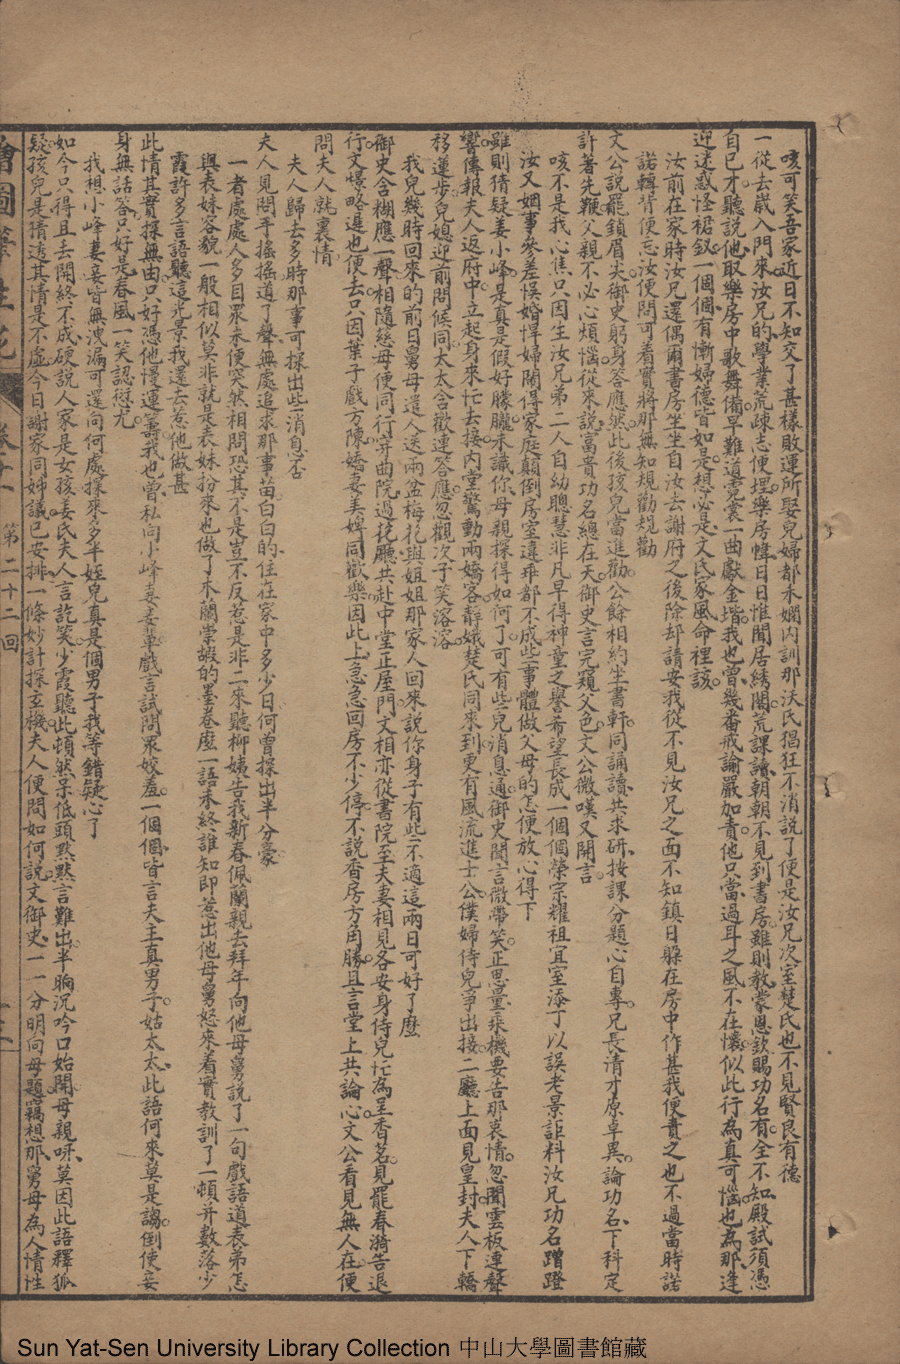 咳可笑吾家近日不知交了甚樣敗運所娶兒婦都未嫻內訓那沃氏猖狂不消說了便是汝兄次室楚氏也不見賢良有德
一從去歲入門來汝兄的學業荒疎志便埋樂房幃日日惟聞居綉闌荒課讀朝朝不見到書房雖則教蒙恩欽賜功名有全不知殿試須憑
自已才聽說他取樂房中歌舞備早難道霓裳一曲獻金堦我也曾幾番戒諭嚴加責他只當過耳之風不在懷似此行為真可惱也為那逢
迎迷惑怪裙釵一個個有慚婦德皆如是想必是文氏家風命裡該
汝前在家時汝兄還偶爾書房坐坐自汝去謝府之後除却請安我從不見汝兄之面不知鎮日躲在房中作甚我便責之也不過當時諾
諾轉背便忘汝便問可看實將那無知規勸規勸
文公說罷鎖眉尖御史躬身答應然此後孩兒當進勸公餘相約坐書軒同誦讀共求研按課分題心自專兄長清才原卓異論功名下科定
許著先鞭父親不必心煩惱從來說富貴功名總在天御史言完窺父色文公微嘆又開言
咳不是我心焦只因生汝兄弟二人自幼聰慧非凡早得神童之譽希望長成一個個榮宗耀祖宜室添丁以誤老景詎料汝兄功名蹭蹬
汝又姻事參差悞婚悍婦鬧得家庭顛倒房室違乖都不成些事體做父母的怎便放心得下
雖則猜疑妻小峰是真是假好朦朧未識你母親探得如何了可有些兒消息通御史聞言微帶笑正思量乘機要告那衷情忽聞雲板連聲
響傳報夫人返府中立起身來忙去接內堂驚動兩嬌客靜娥楚氏同來到更有風流進士公僕婦侍兒爭出接二廳上面見皇封夫人下轎
移蓮步兒媳迎前問候同太太含歡連答應忽觀次子笑溶溶
我兒幾時回來的前日舅母遣人送兩盆梅花與姐姐那家人回來說你身子有些不適這兩日可好了麼
御史含糊應一聲相隨慈母便同行穿曲院過花廳共赴中堂正屋門文相亦從書院至夫妻相見各安身侍兒忙為呈香茗見罷春漪告退
行文㬌略遲也便去只因葉子戲方陳嬌妻美婢同歡樂因此上急急回房不少停不說香房方角勝且言堂上共論心文公看見無人在便
問夫人就裏情
夫人歸去多時那事可探出些消息否
夫人見問手搖搖道了聲無處追求那事苗白白的住在家中多少日何曾探出半分豪
一者處處人多目眾未便突然相問恐其不是豈不反惹是非二來聽柳姨告我新春佩蘭親去拜年向他母舅說了一句戲語道表弟怎
與表妹容貌一般相似莫非就是表妹扮來也做了木蘭崇嘏的墨卷麼一語未終誰知即惹出他母舅怒來着實教訓了一頓并數落少
霞許多言語聽這光景我還去惹他做甚
此情其實探無由只好憑他慢運籌我也曾私向小峰妻妾輩戲言試問眾姣羞一個個皆言夫主真男子姑太太此語何來莫是謅倒使妾
身無話答只好是春風一笑認愆尤
我想小峰妻妾皆無洩漏可還向何處探來多半姪兒真是個男子我等錯疑心了
如今只得且去開終不成硬說人家是女孩姜氏夫人言訖笑少霞聽此頓然呆低頭默默言難出半晌沉吟口始開母親咪莫因此語釋狐
疑孩兒是猜透其情是不虛今日謝家同姊議已安排一條妙計探玄機夫人便問如何說文御史一一分明向母題竊想那舅母為人情性
繪圖筆生花 第二十二回
Sun Yat-Sen University Library Collection 中山大學圖書館藏